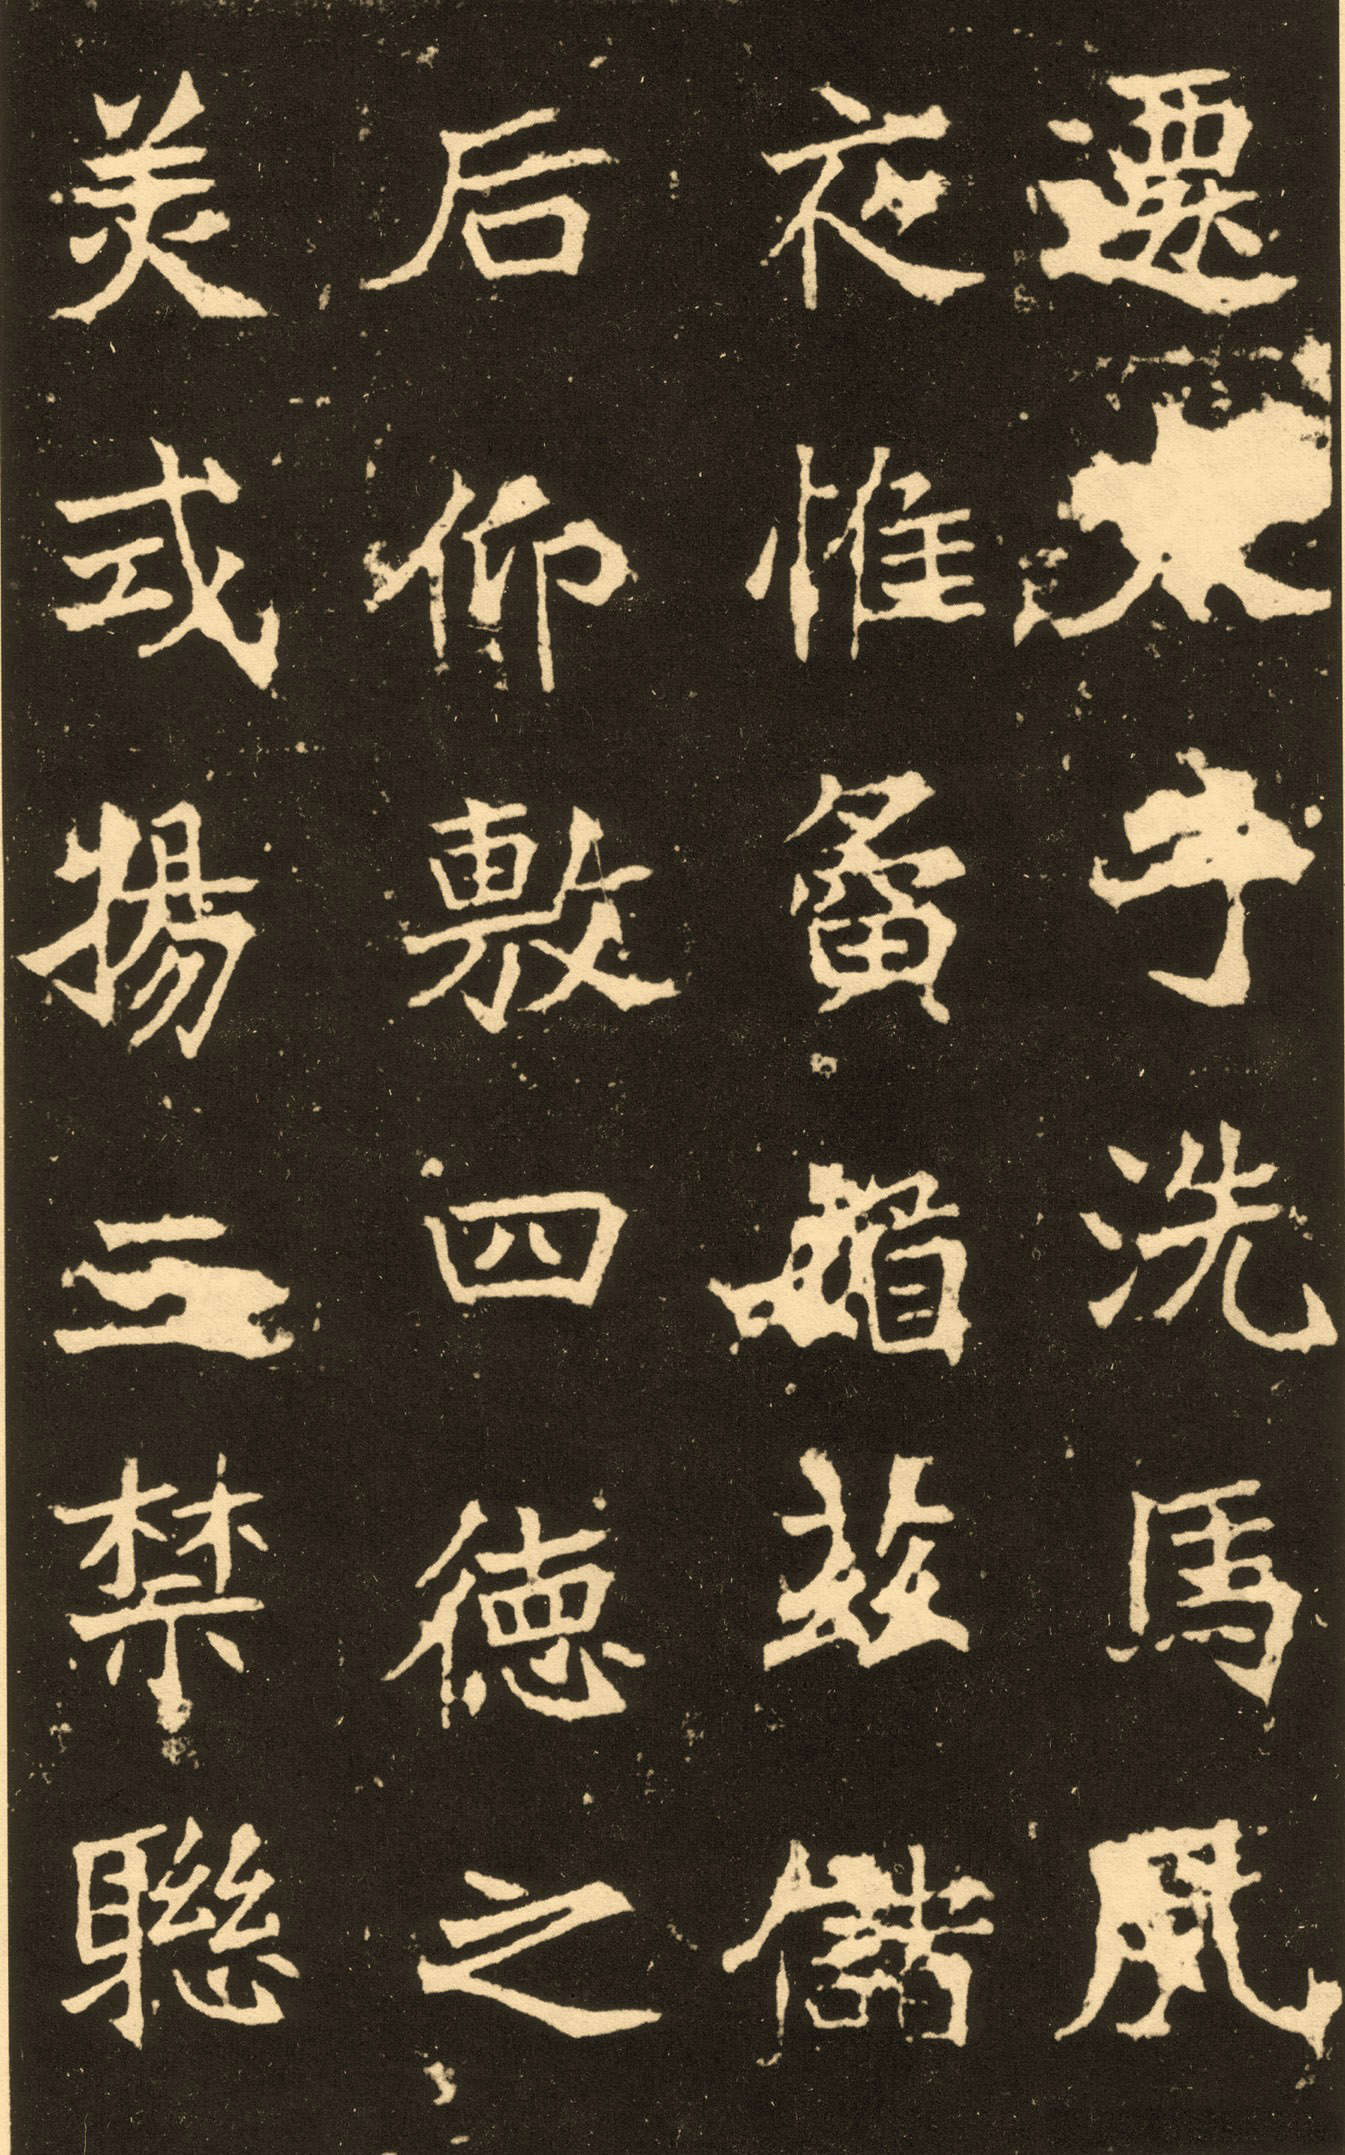 遷太子洗馬夙
夜惟夤媚茲儲
后仰敷四德之
美式揚三禁聯